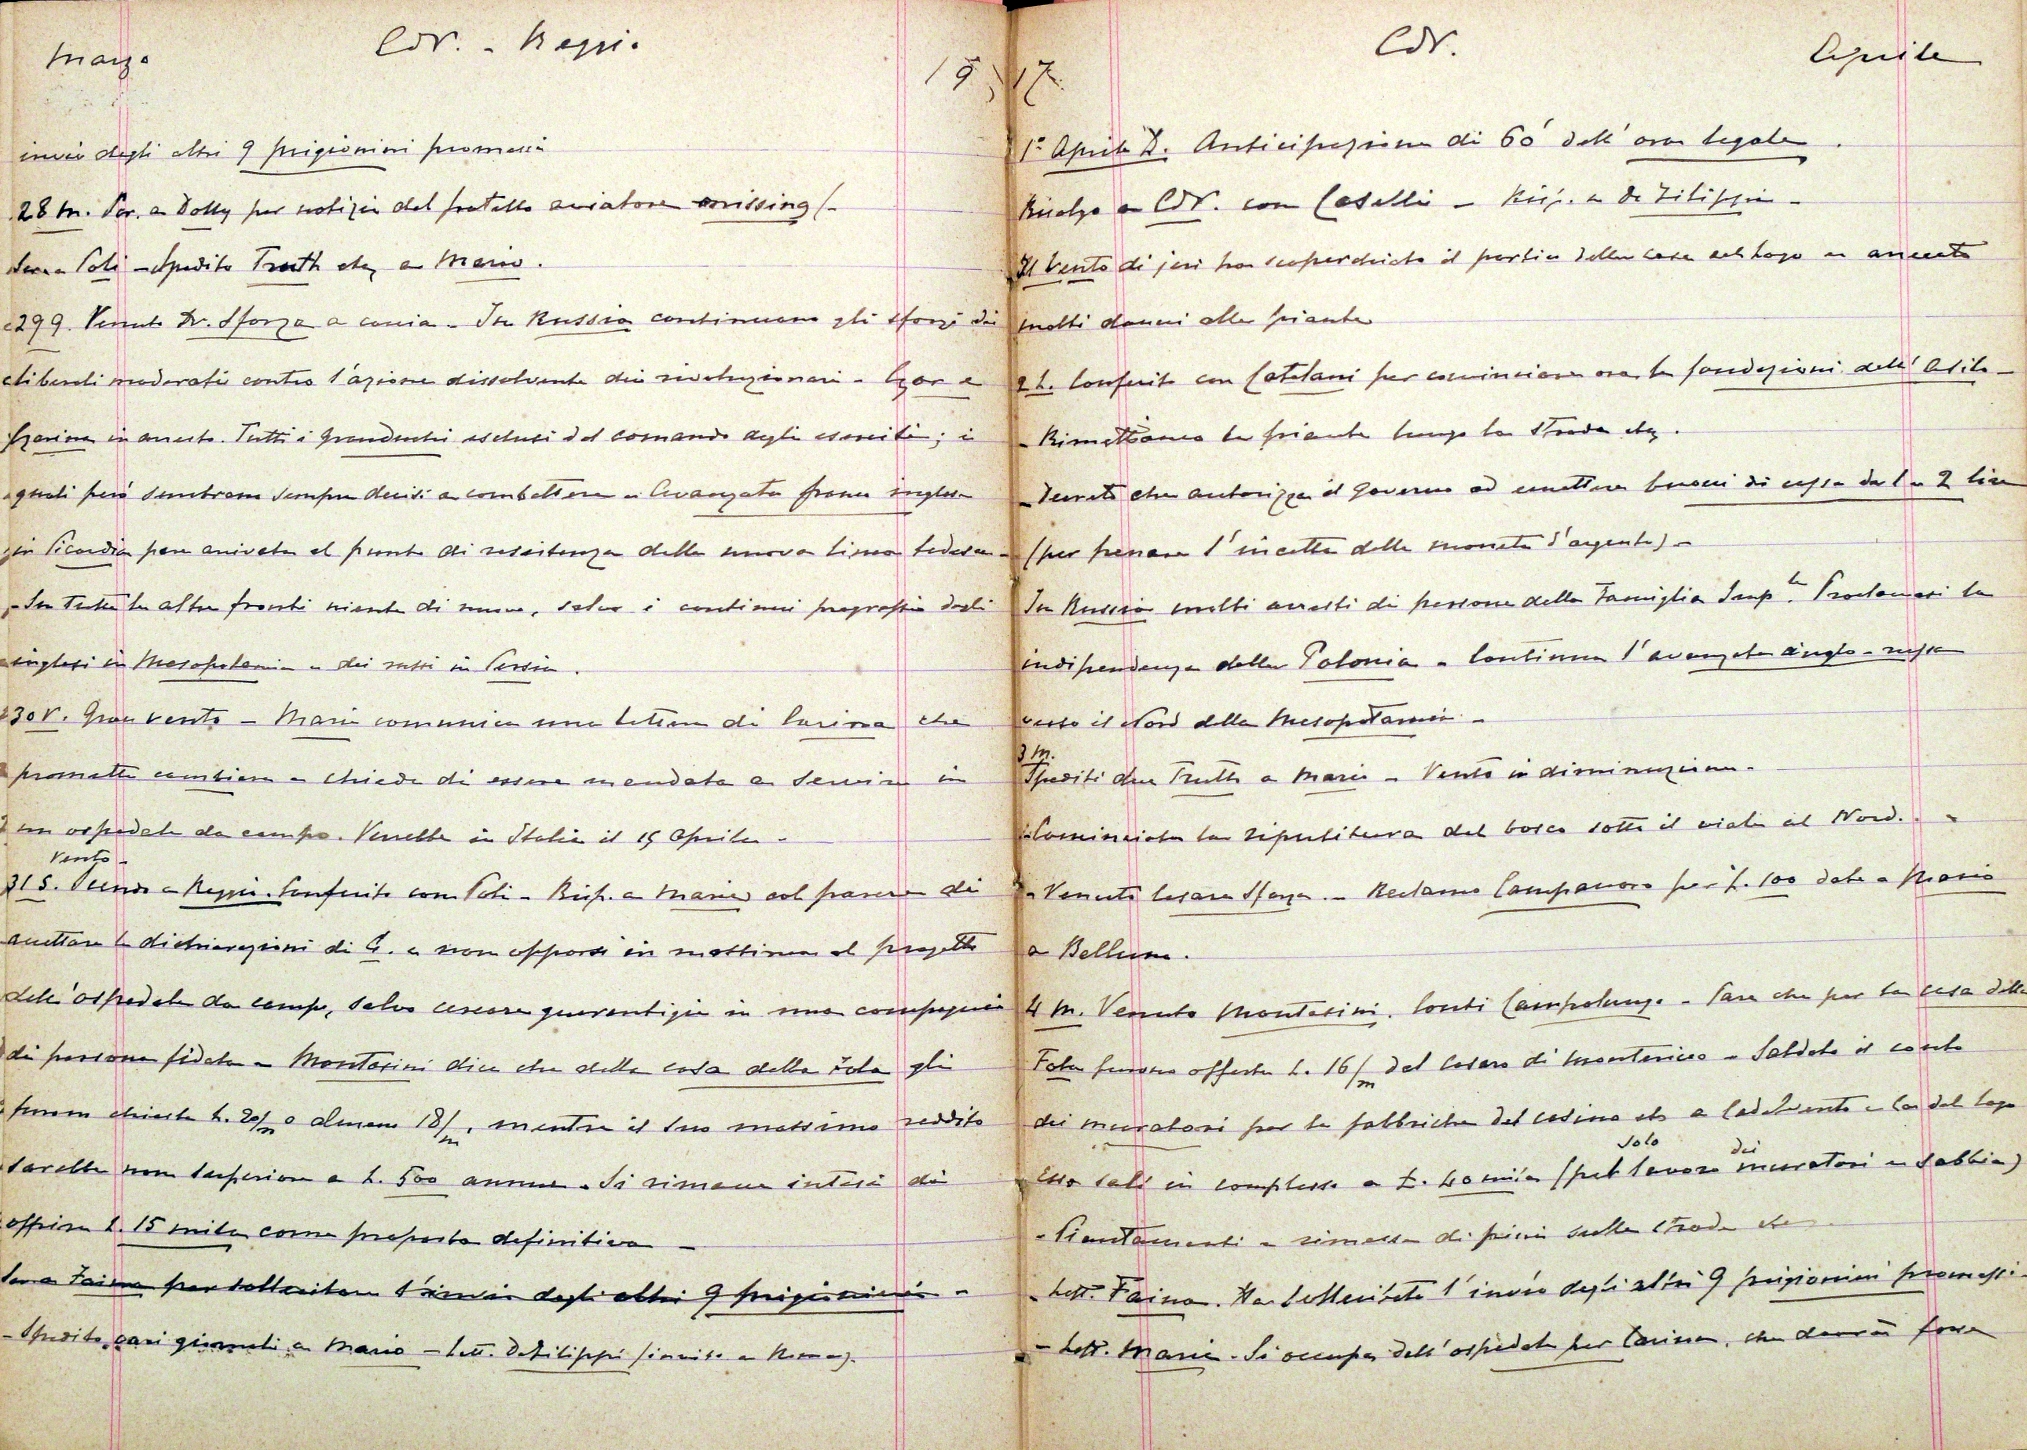 Marzo
CdV. - Reggio
19
invio degli altri 9 prigionieri promessi
28 M. Scr. a Dolly per notizie del fratello aviatore missing (-
Scr. a Poli - Spedito Truth etc a Mario.
29 G. Venuto Dr. Sforza a caccia - In Russia continuano gli sforzi dei
liberali moderati contro l'azione dissolvente dei rivoluzionari - Czar e
Czarina in arresto. Tutti i granduchi esclusi dal comando degli eserciti; i
quali però sembrano sempre decisi a combattere - Avanzata franco inglese
in Picardia pare arrivata al punto di resistenza della nuova linea tedesca -
- Su tutte le altre fronti niente di nuovo, salvo i continui progressi degli
inglesi in Mesopotamia e dei russi in Persia.
30 V. Gran vento - Mario comunica una lettera di Carina che
promette cambiare e chiede di essere mandata a servire in
un ospedale da campo. Verrebbe in Italia il 15 Aprile -
Vento -
31 S. Scendo a Reggio. Conferito con Poli - Risp. a Mario col parere di
accettare le dichiarazioni di C. e non opporsi in massima al progetto
dell'ospedale da campo, salvo cercare guarentigie in una compagnia
di persona fidata - Montasini dice che della casa della Fola gli
furon chieste L. 20/m o almeno 18/m, mentre il suo massimo reddito
sarebbe non superiore a L. 500 annue - Si rimane intesi di
offrire L. 15 mila come proposta definitiva -
Scr. a Faina per sollecitare l'invio degli altri 9 prigionieri -
- Spedito vari giornali a Mario - Lett. De Filippi (invito a Roma).
17
CdV.
Aprile
1° Aprile D. Anticipazione di 60' dell'ora legale.
Risalgo a CdV. con Caselli - Risp. a De Filippi -
Il Vento di jeri ha scoperchiato il portico della casa al lago e arrecato
molti danni alle piante
2 L. Conferito con Catelani per cominciare ora le fondazioni dell'Asilo -
- Rimettiamo le piante lungo la strada etc.
- Decreto che autorizza il governo ad emettere buoni di cassa da 1 e 2 lire
(per frenare l'incetta delle monete d'argento) -
In Russia molti arresti di persone della Famiglia Imp.le Proclamasi la
indipendenza della Polonia - Continua l'avanzata anglo-russa
verso il Nord della Mesopotamia -
3 M.
Spediti due Truth a Mario - Vento in diminuzione -
- Cominciata la ripulitura del bosco sotto il viale al Nord. -
- Venuto Cesare Sforza. - Reclamo Campanoro per L. 100 date a Mario
a Belluno.
4 M. Venuto Montasini. Conti Campolungo - Pare che per la casa della
Fola furono offerte L. 16/m dal Casaro di Montericco - Saldato il conto
dei muratori per le fabbriche del casino etc a Cadelvento e Ca del lago
solo dei
Esso salì in complesso a L. 40 mila (pel lavoro muratori e sabbia)
- Piantamenti e rimessa di pini sulla strada etc -
- Lett. Faina. Ha sollecitato l'invio degli altri 9 prigionieri promessi -
- Lett. Mario - Si occupa dell'ospedale per Carina, che dovrà forse